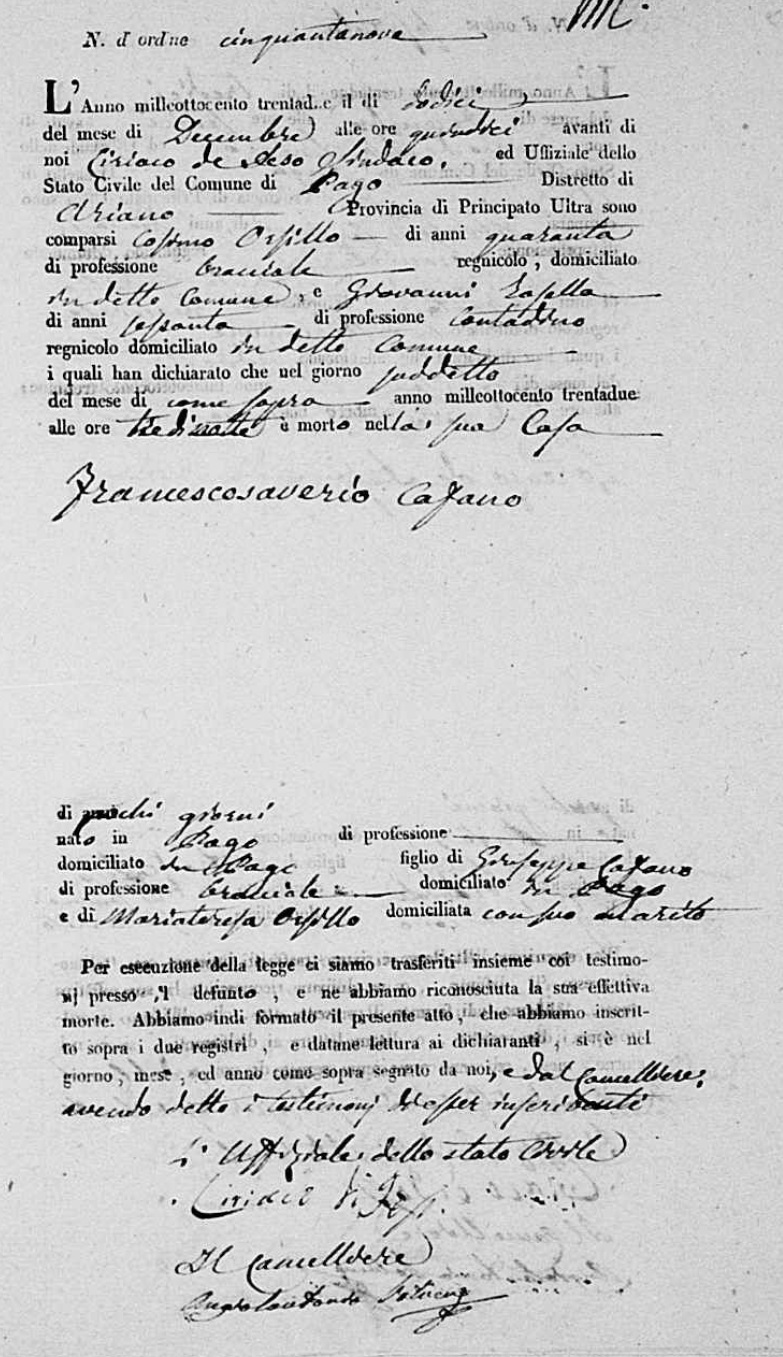 N. d'ordne cinquantanove
L'Anno milleottocento trentad..e il di dodici
del mese di Decembre alle ore quindici avanti di
noi Ciriaco de Sindaco, ed Uffiziale dello
Stato Civile del Comune di Pago Distretto di
Ariano Provincia di Principato Ultra sono
comparsi Cosimo Orsillo di anni quaranta
di professione bracciale regnicolo, domiciliato
in detto Comune, e Giovanni
di anni sessanta di professione contadino
regnicolo domiciliato in detto Comune
i quali han dichiarato che nel giorno suddetto
del mese di come sopra anno milleottocento trentadue
alle ore è morto nella sua Casa
Francescosaverio Cafano
di anni pochi giorni
nato in Pago di professione
domiciliato in Pago figlio di Giuseppe Cafano
di professione bracciale domiciliato in Pago
e di Mariateresa Orsillo domiciliata con suo marito
Per esecuzione della legge ci siamo trasferiti insieme coi testimo-
nj presso 'l defunto, e ne abbiamo riconosciuta la sua effettiva
morte. Abbiamo indi formato il presente atto, che abbiamo inscrit-
to sopra i due registri, e datane lettura ai dichiaranti, si è nel
giorno, mese, ed anno come sopra segnato da noi, e dal Cancelliere,
avendo detto i testimonj di esser inscribenti
L'Uffiziale dello stato Civile
Ciriaco
Il Cancelliere